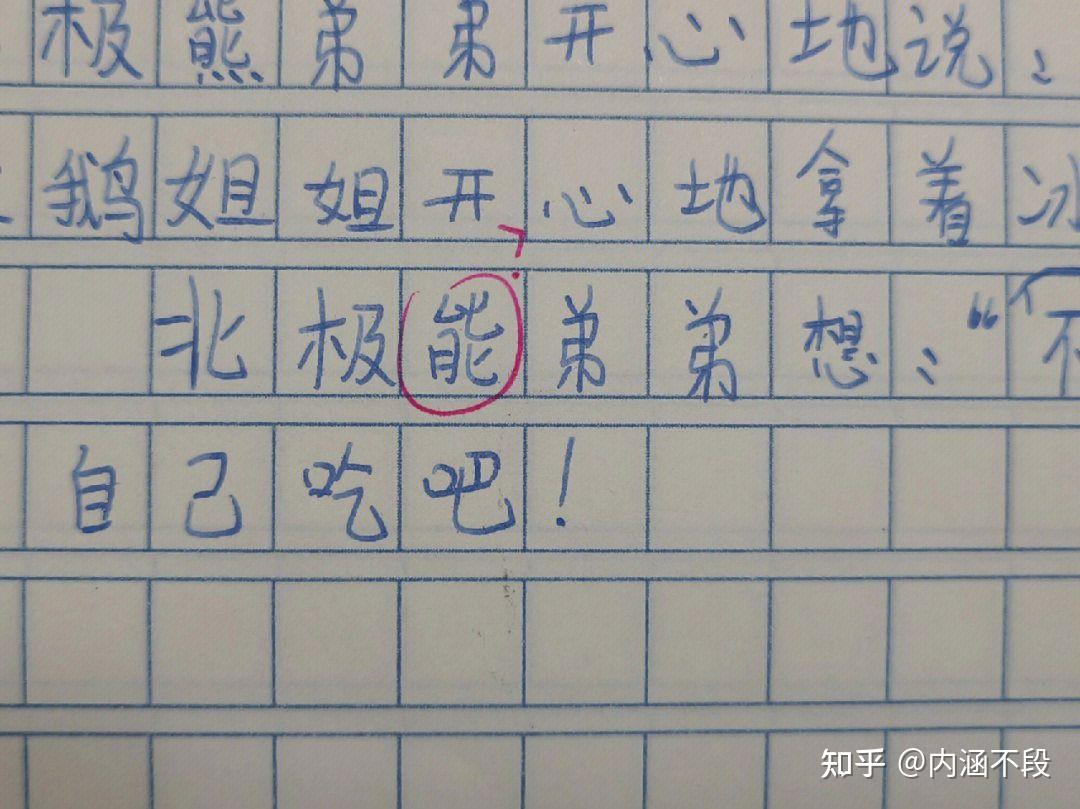 极熊弟弟开心地说：
鹅姐姐开心地拿着冰
？
北极能弟弟想：“不
自己吃吧！
知乎 @内涵不段